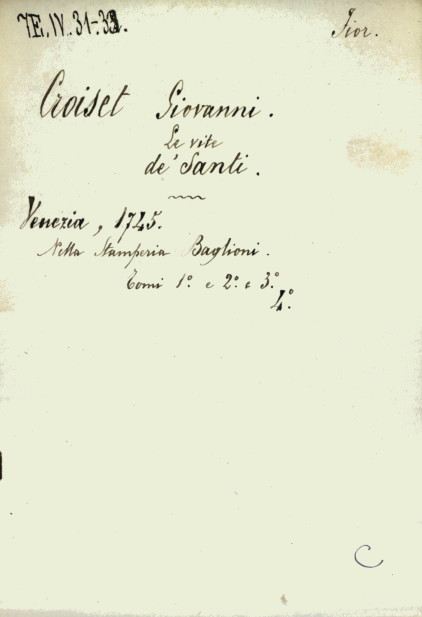 7E. IV. 31-33. Fior.
Croiset Giovanni.
Le vite
de' Santi.
Venezia, 1745.
Nella Stamperia Baglioni.
Tomi 1º. e 2º. e 3º.
4º.
C